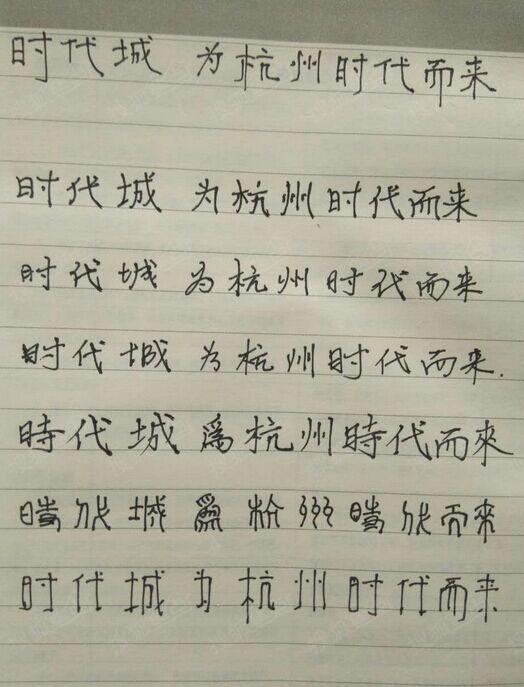 时代城 为杭州时代而来
时代城 为杭州时代而来
时代城 为杭州时代而来
时代城 为杭州时代而来.
時代城 爲杭州時代而來
時代城 爲杭州時代而來
时代城 为杭州时代而来